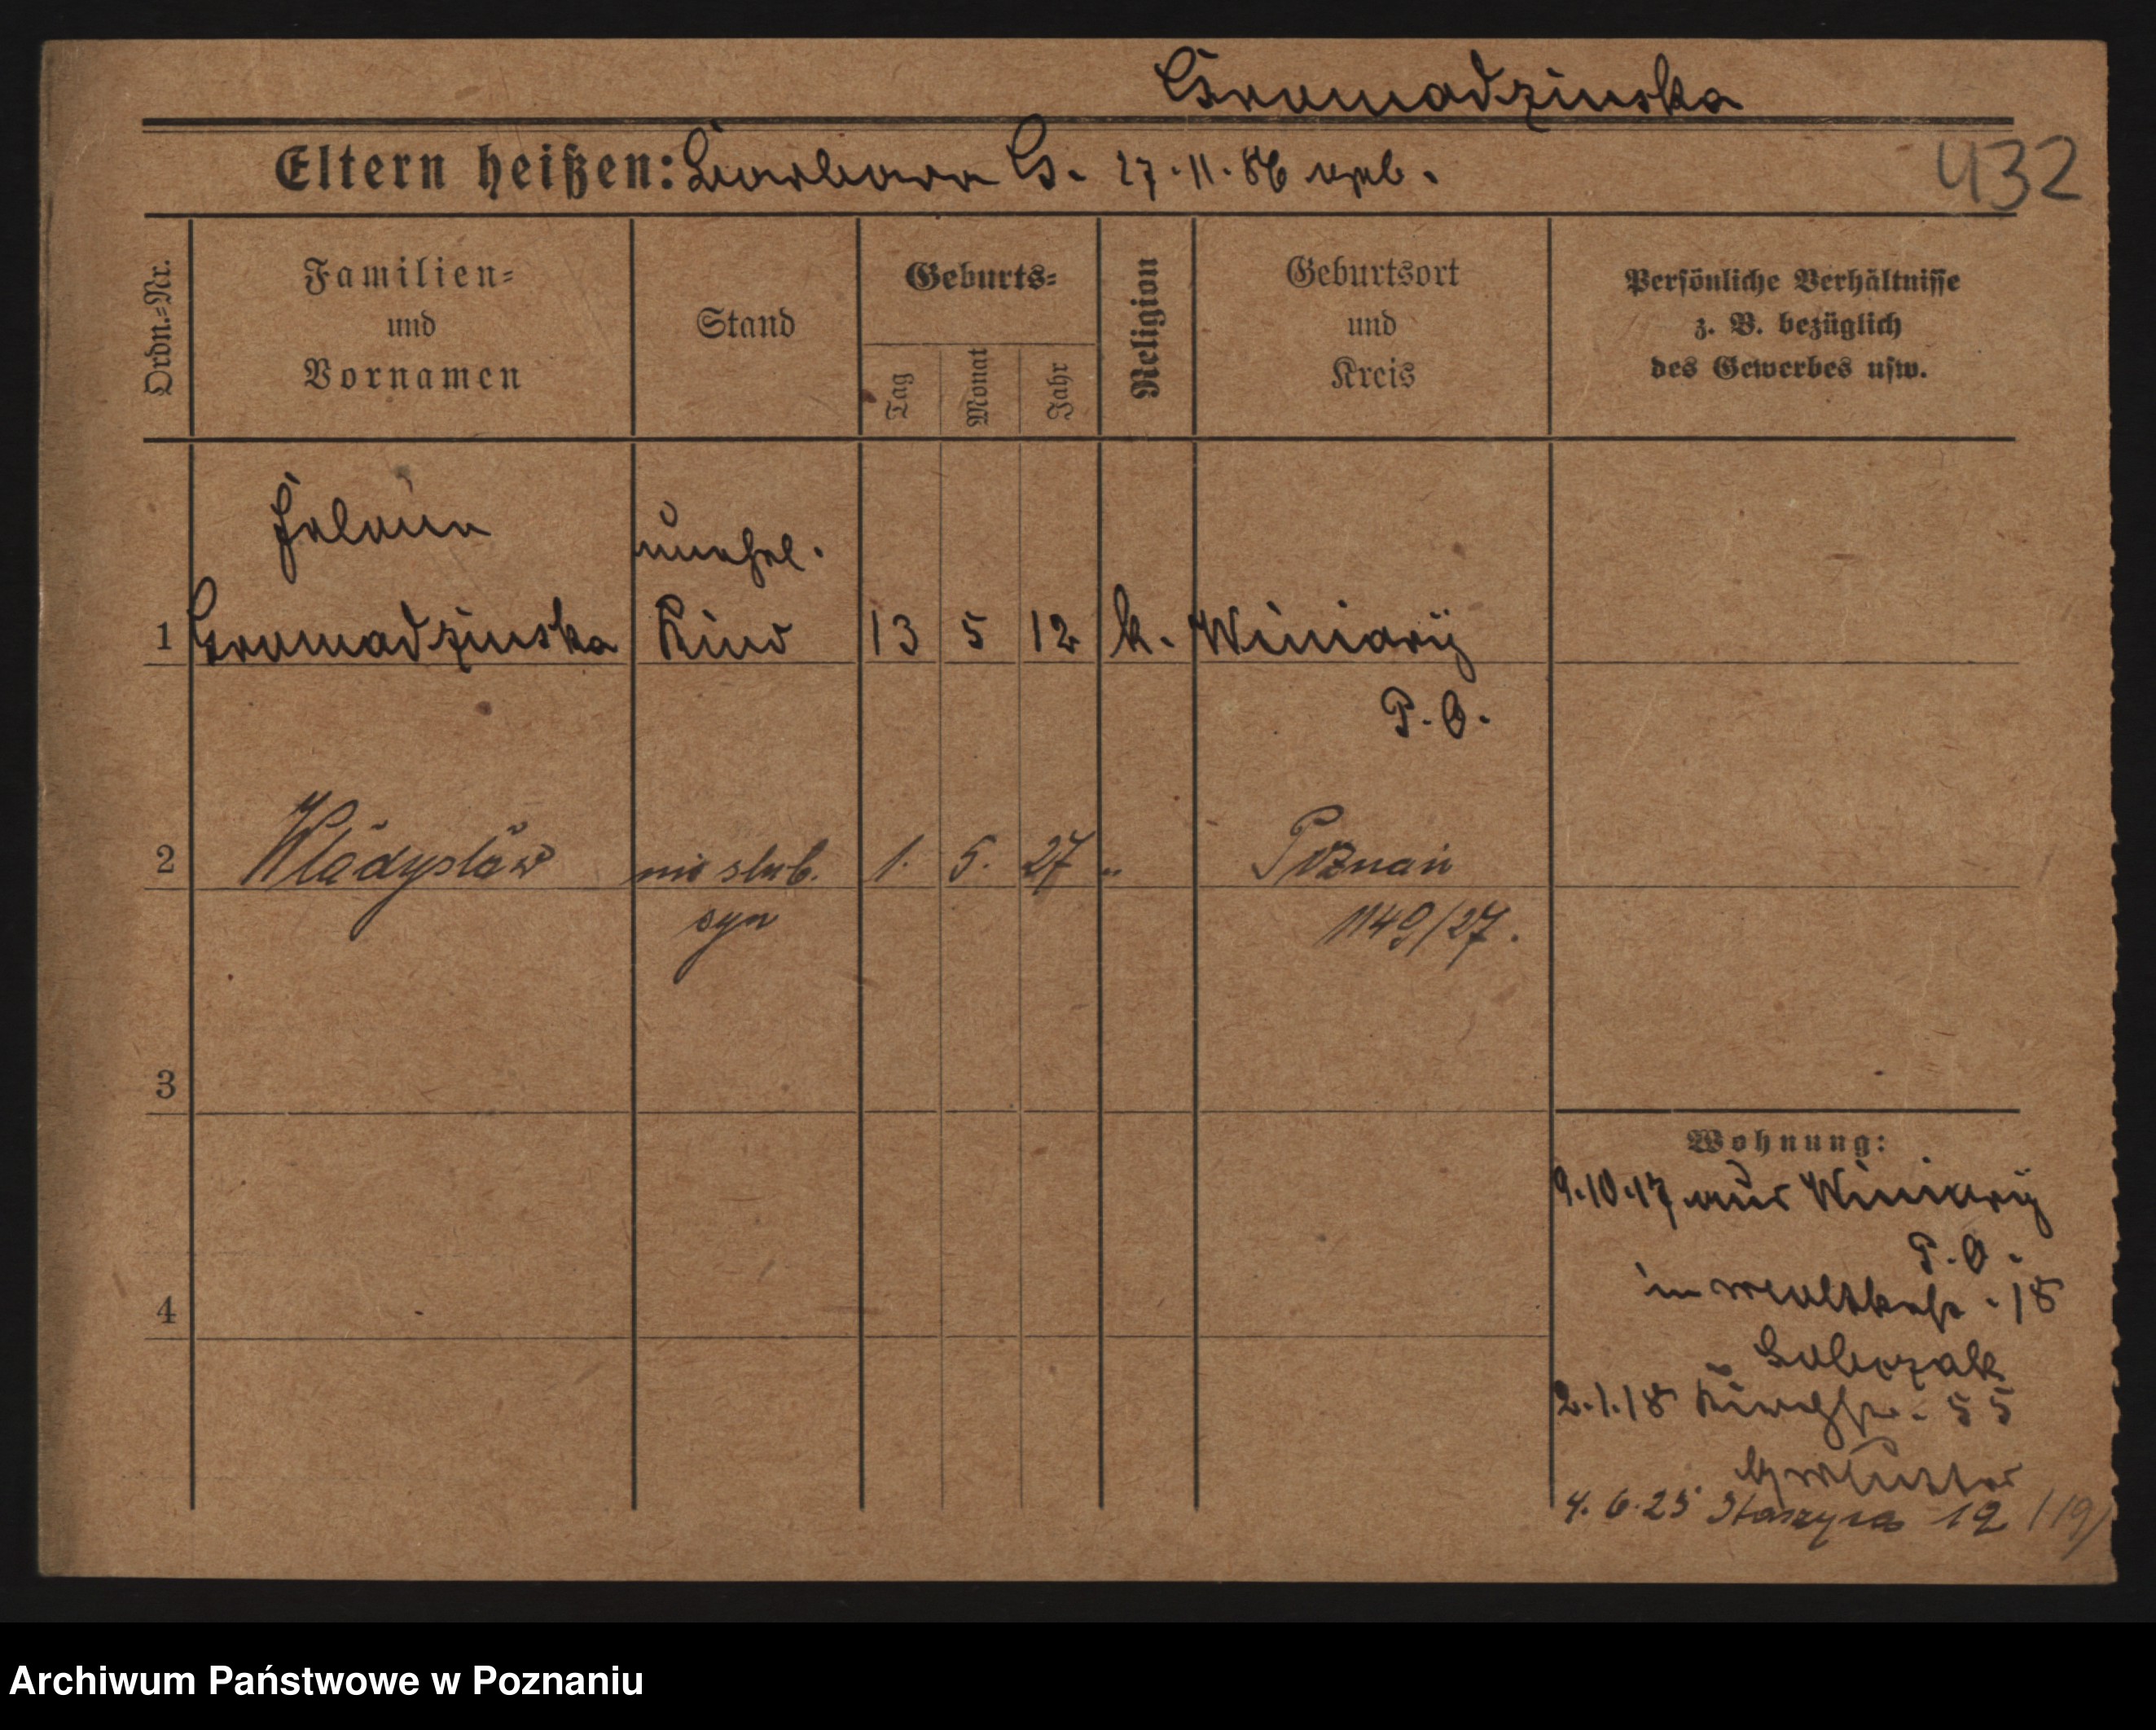 Gromadzinska
Eltern heißen: Barbara G. 27.11.86 geb.
432
Ordn.-Nr.
Familien-
und
Vornamen
Stand
Geburts-
Tag
Monat
Jahr
Religion
Geburtsort
und
Kreis
Persönliche Verhältnisse
z. B. bezüglich
des Gewerbes usw.
Helena unehel.
1 Gromadzinska Kind 13 5 12 k. Winiary
P. O.
2 Władysław nieślub. 1. 5. 27 " Poznań
syn 1149/27.
3
4
Wohnung:
9.10.17 aus Winiary
P. O.
in 18
2.1.18 55
4.6.25 Staszyca 19 /19/
Archiwum Państwowe w Poznaniu